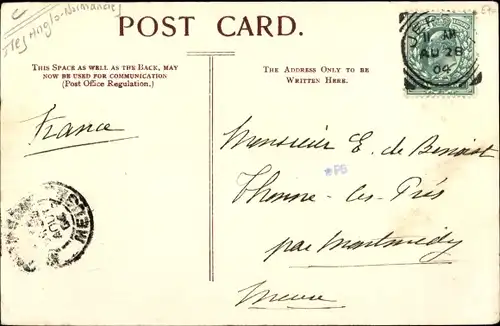 Iles Anglo-Normandes
POST CARD.
THIS SPACE AS WELL AS THE BACK, MAY
NOW BE USED FOR COMMUNICATION
(Post Office Regulation.)
THE ADDRESS ONLY TO BE
WRITTEN HERE.
JERSEY
AU 28
04
France
Monsieur E. de Benoist
Thonne-les-Prés
par Montmédy
Meuse